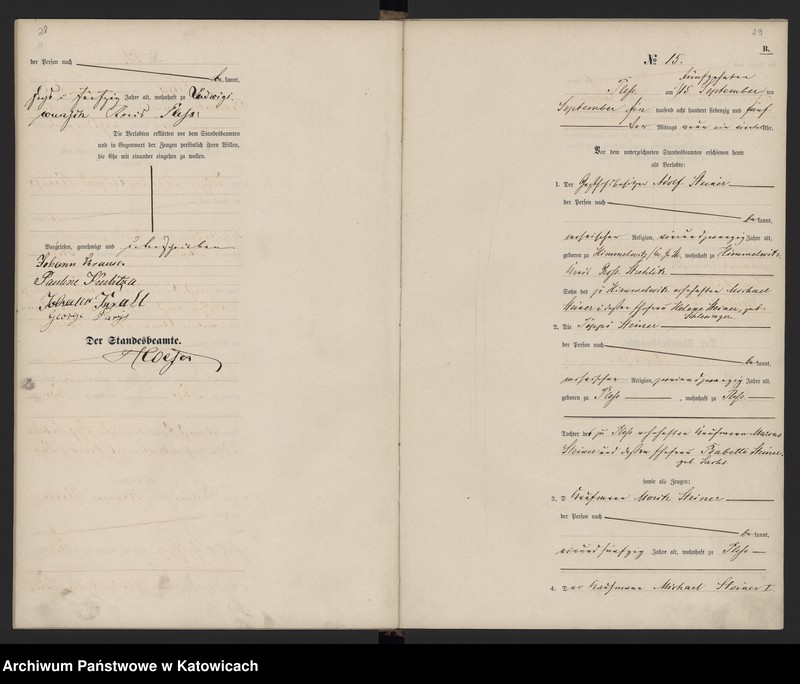 28
der Person nach
be kannt,
Jahre alt, wohnhaft zu Ludwigs
Kreis Pless.
Die Verlobten erklärten vor dem Standesbeamten
und in Gegenwart der Zeugen persönlich ihren Willen,
die Ehe mit einander eingehen zu wollen.
Vorgelesen, genehmigt und unterschrieben
Johann Krause
Pauline
Johann
George
Der Standesbeamte.
29
B.
No 15.
Pless, am fünfzehnten
15 September ten
September ein tausend acht hundert siebenzig und fünf
Vor Mittags neun ein Uhr.
Vor dem unterzeichneten Standesbeamten erschienen heute
als Verlobte:
1. Der Gasthofbesitzer Adolf Steiner
der Person nach
be kannt,
mosaischer Religion, Jahre alt,
geboren zu Himmelwitz, wohnhaft zu Himmelwitz
Kreis Gross Strehlitz
Sohn des zu Himmelwitz Michael
Steiner und dessen Ehefrau Helene Steiner, geb.
Schlesinger
2. Die Steiner
der Person nach
be kannt,
mosaischer Religion, zweiundzwanzig Jahre alt,
geboren zu Pless, wohnhaft zu Pless
Tochter des zu Pless Kaufmann Marcus
Steiner und dessen Ehefrau Babette Steiner,
geb. Sachs
sowie als Zeugen:
3. D Kaufmann Moritz Steiner
der Person nach
be kannt,
vierundfünfzig Jahre alt, wohnhaft zu Pless
4. Der Kaufmann Michael Steiner I.
Archiwum Państwowe w Katowicach